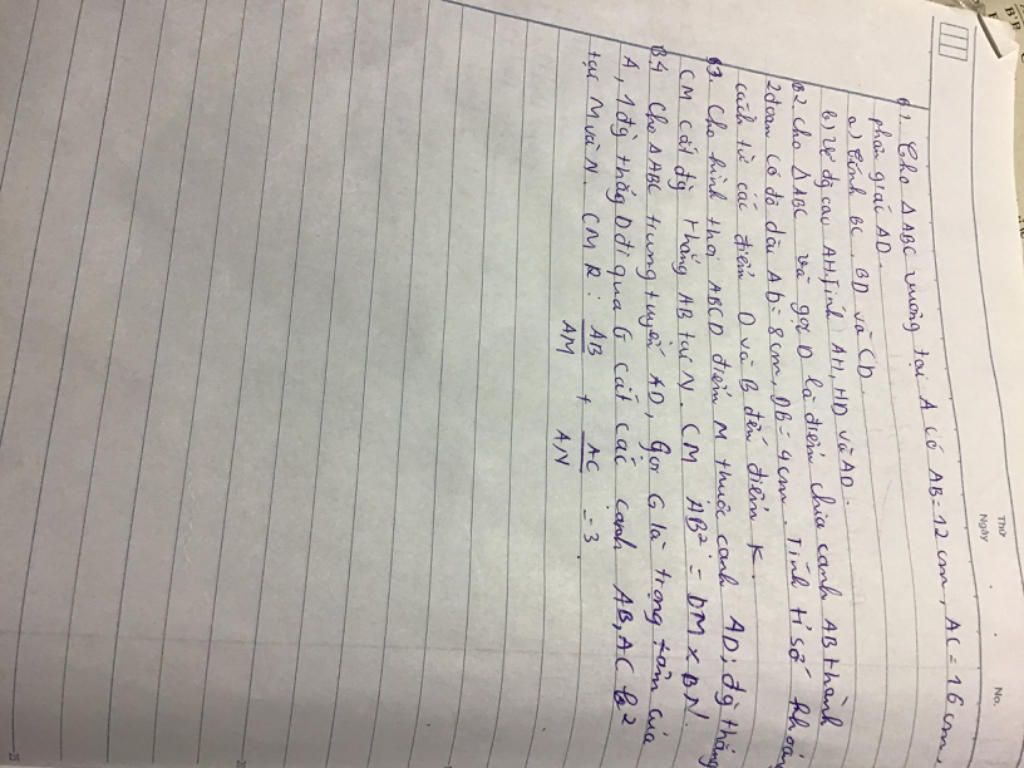 Thứ
Ngày
No.
B1. Cho ΔABC vuông tại A có AB = 12 cm, AC = 16 cm,
phân giác AD.
a) Tính BC, BD và CD.
b) Vẽ đg cao AH. Tính AH, HD và AD.
B2 cho ΔABC và gọi D là điểm chia cạnh AB thành
2 đoạn có độ dài AD = 8cm, DB = 4cm. Tính tỉ số khoảng
cách từ các điểm D và B đến điểm K.
B3 Cho hình thoi ABCD điểm M thuộc cạnh AD; đg thẳng
CM cắt đg thẳng AB tại N. CM AB² = DM × BN.
B4 Cho ΔABC trung tuyến AD, gọi G là trọng tâm của
Δ, 1 đg thẳng D đi qua G cắt các cạnh AB, AC lần²
tại M và N. CMR: AB/AM + AC/AN = 3.